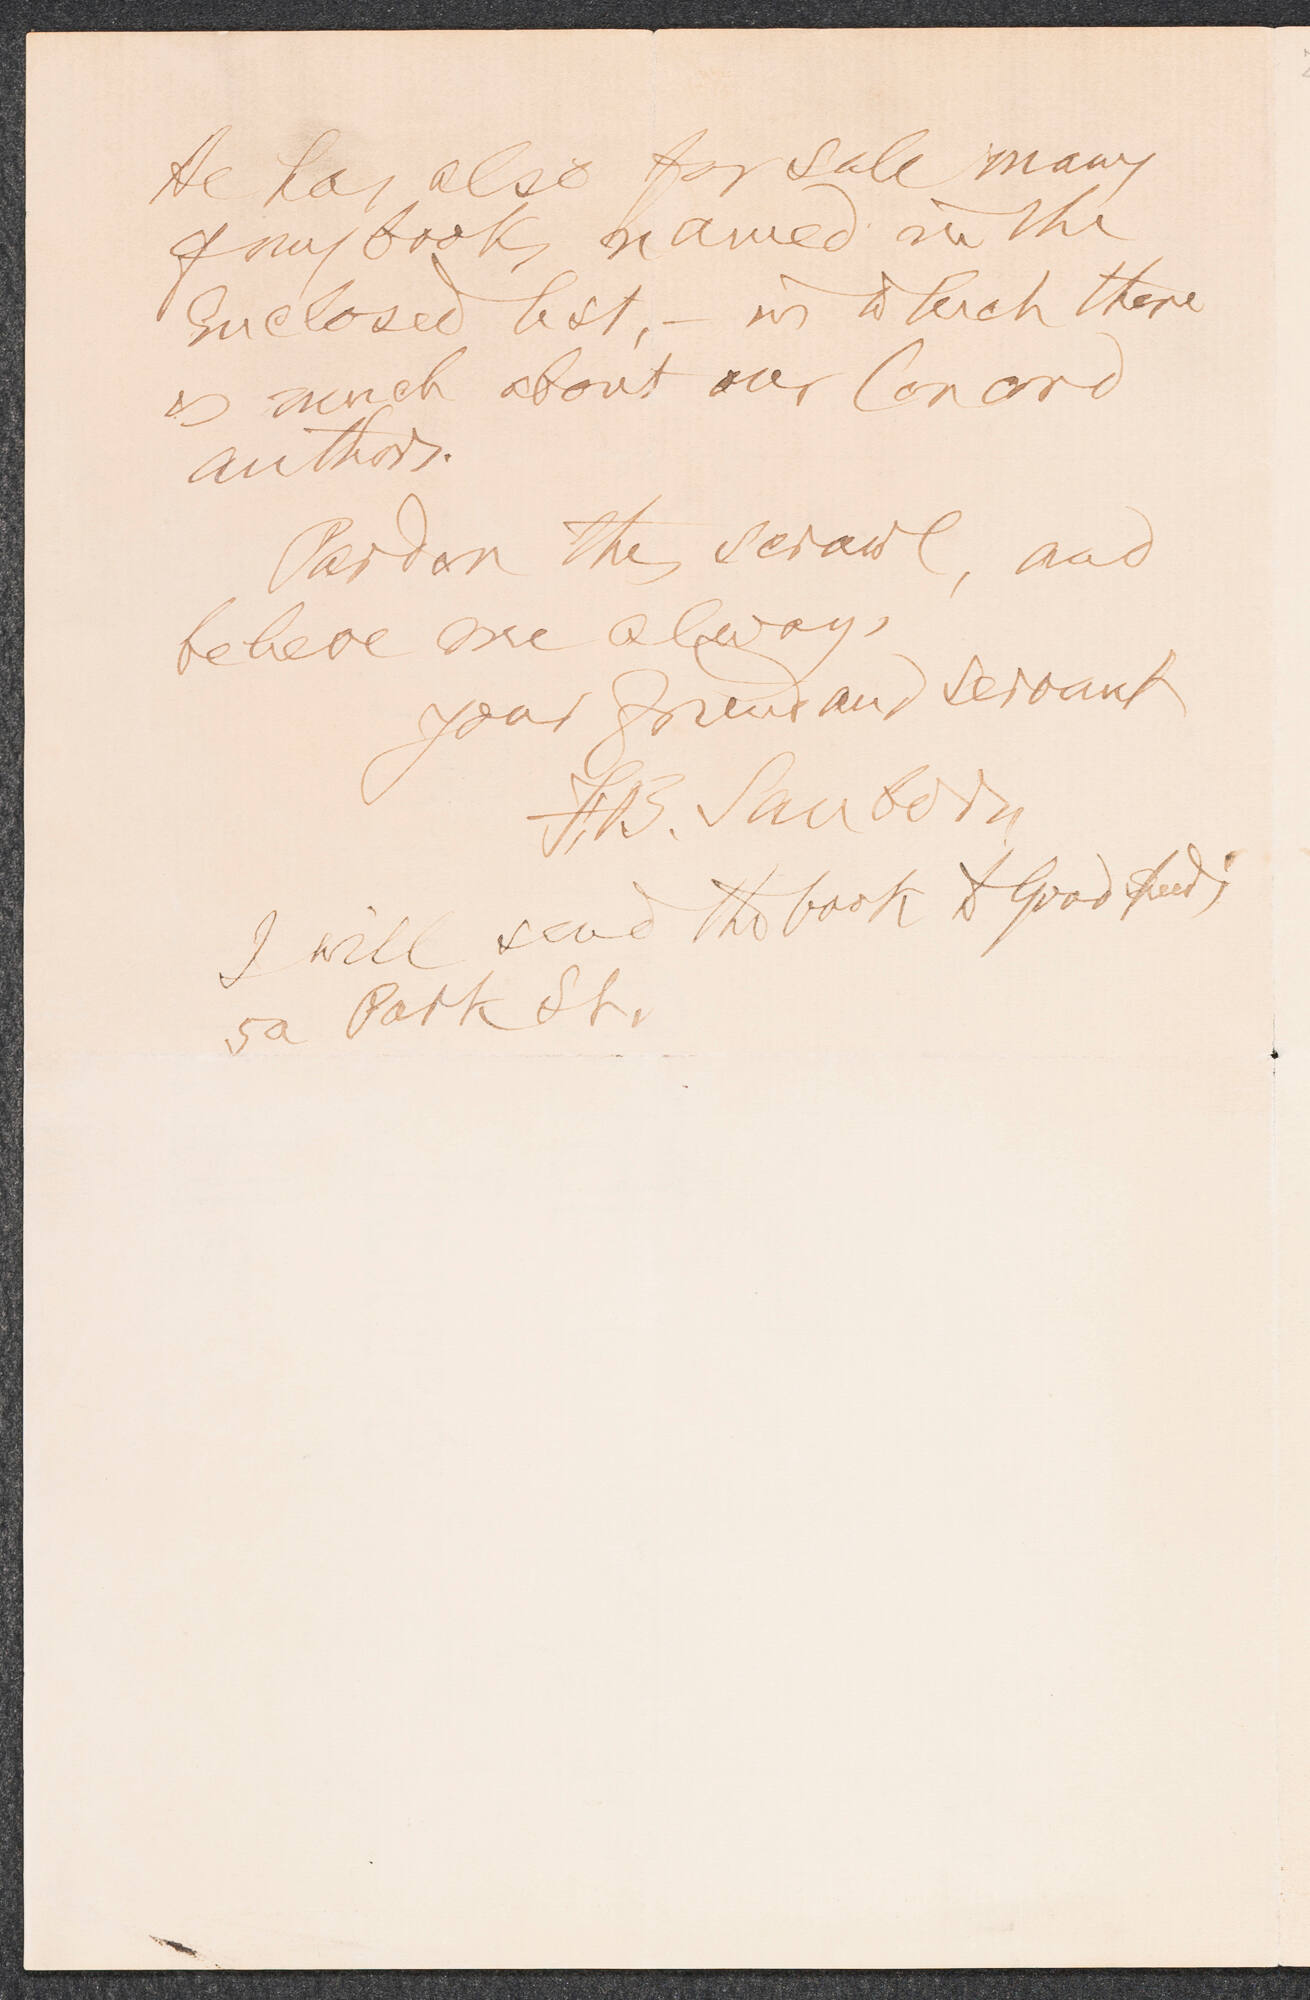 He has also for sale many
of my books named in the
Enclosed list, – in which there
is much about our Concord
authors.
Pardon this scrawl, and
believe me always
your friend and servant
F. B. Sanborn
I will send the book to Goodspeed's
5a Park St.